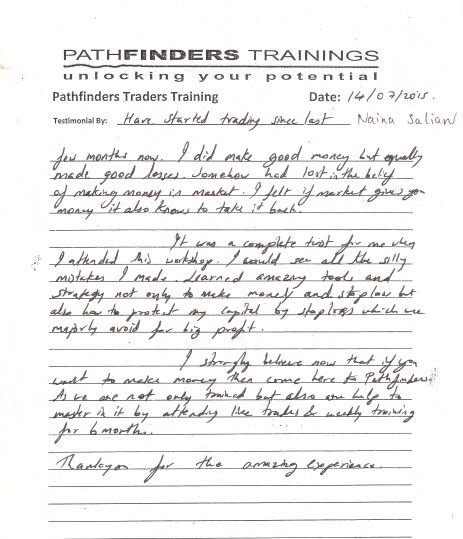 PATHFINDERS TRAININGS
unlocking your potential
Pathfinders Traders Training Date: 14/07/2015.
Testimonial By: Have started trading since last Naina Salian
few months now. I did make good money but equally
made good losses. Somehow had lost in the belief
of making money in market. I felt if market gives you
money it also knows to take it back.
It was a complete twist for me when
I attended this workshop. I would see all the silly
mistakes I made. Learned amazing tools and
strategy not only to make money and stoploss but
also how to protect my capital by stoploss which we
majorly avoid for big profit.
I strongly believe now that if you
want to make money then come here to Pathfinders.
As we are not only trained but also are help to
master in it by attending live trades & weekly training
for 6 months.
Thankyou for the amazing experience.